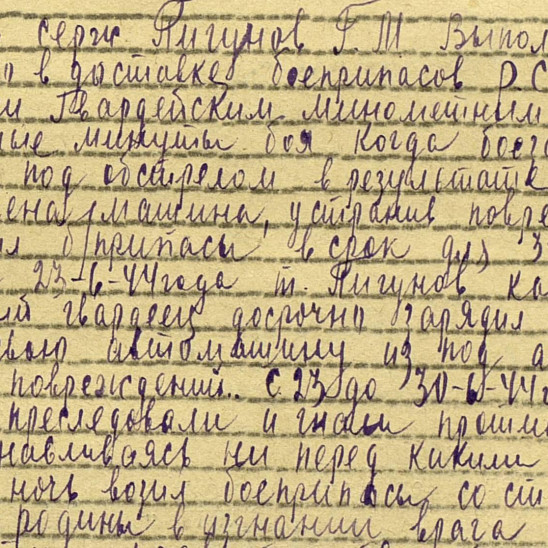 серж Пигунов Г. М Выпол
о в доставке боеприпасов Р.С
м Гвардейским минометным
ные минуты боя когда боез
под обстрелом в результате
ена машина, устранив повре
ил б/припасы в срок для З
23-6-44 года т. Пигунов ка
ий гвардеец досрочно зарядил
свою автомашину из под а
повреждений.. С 23 до 30-6-44г
преследовали и гнали против
навливаясь ни перед какими
ночь возил боеприпасы со ст
родины в изгнании врага